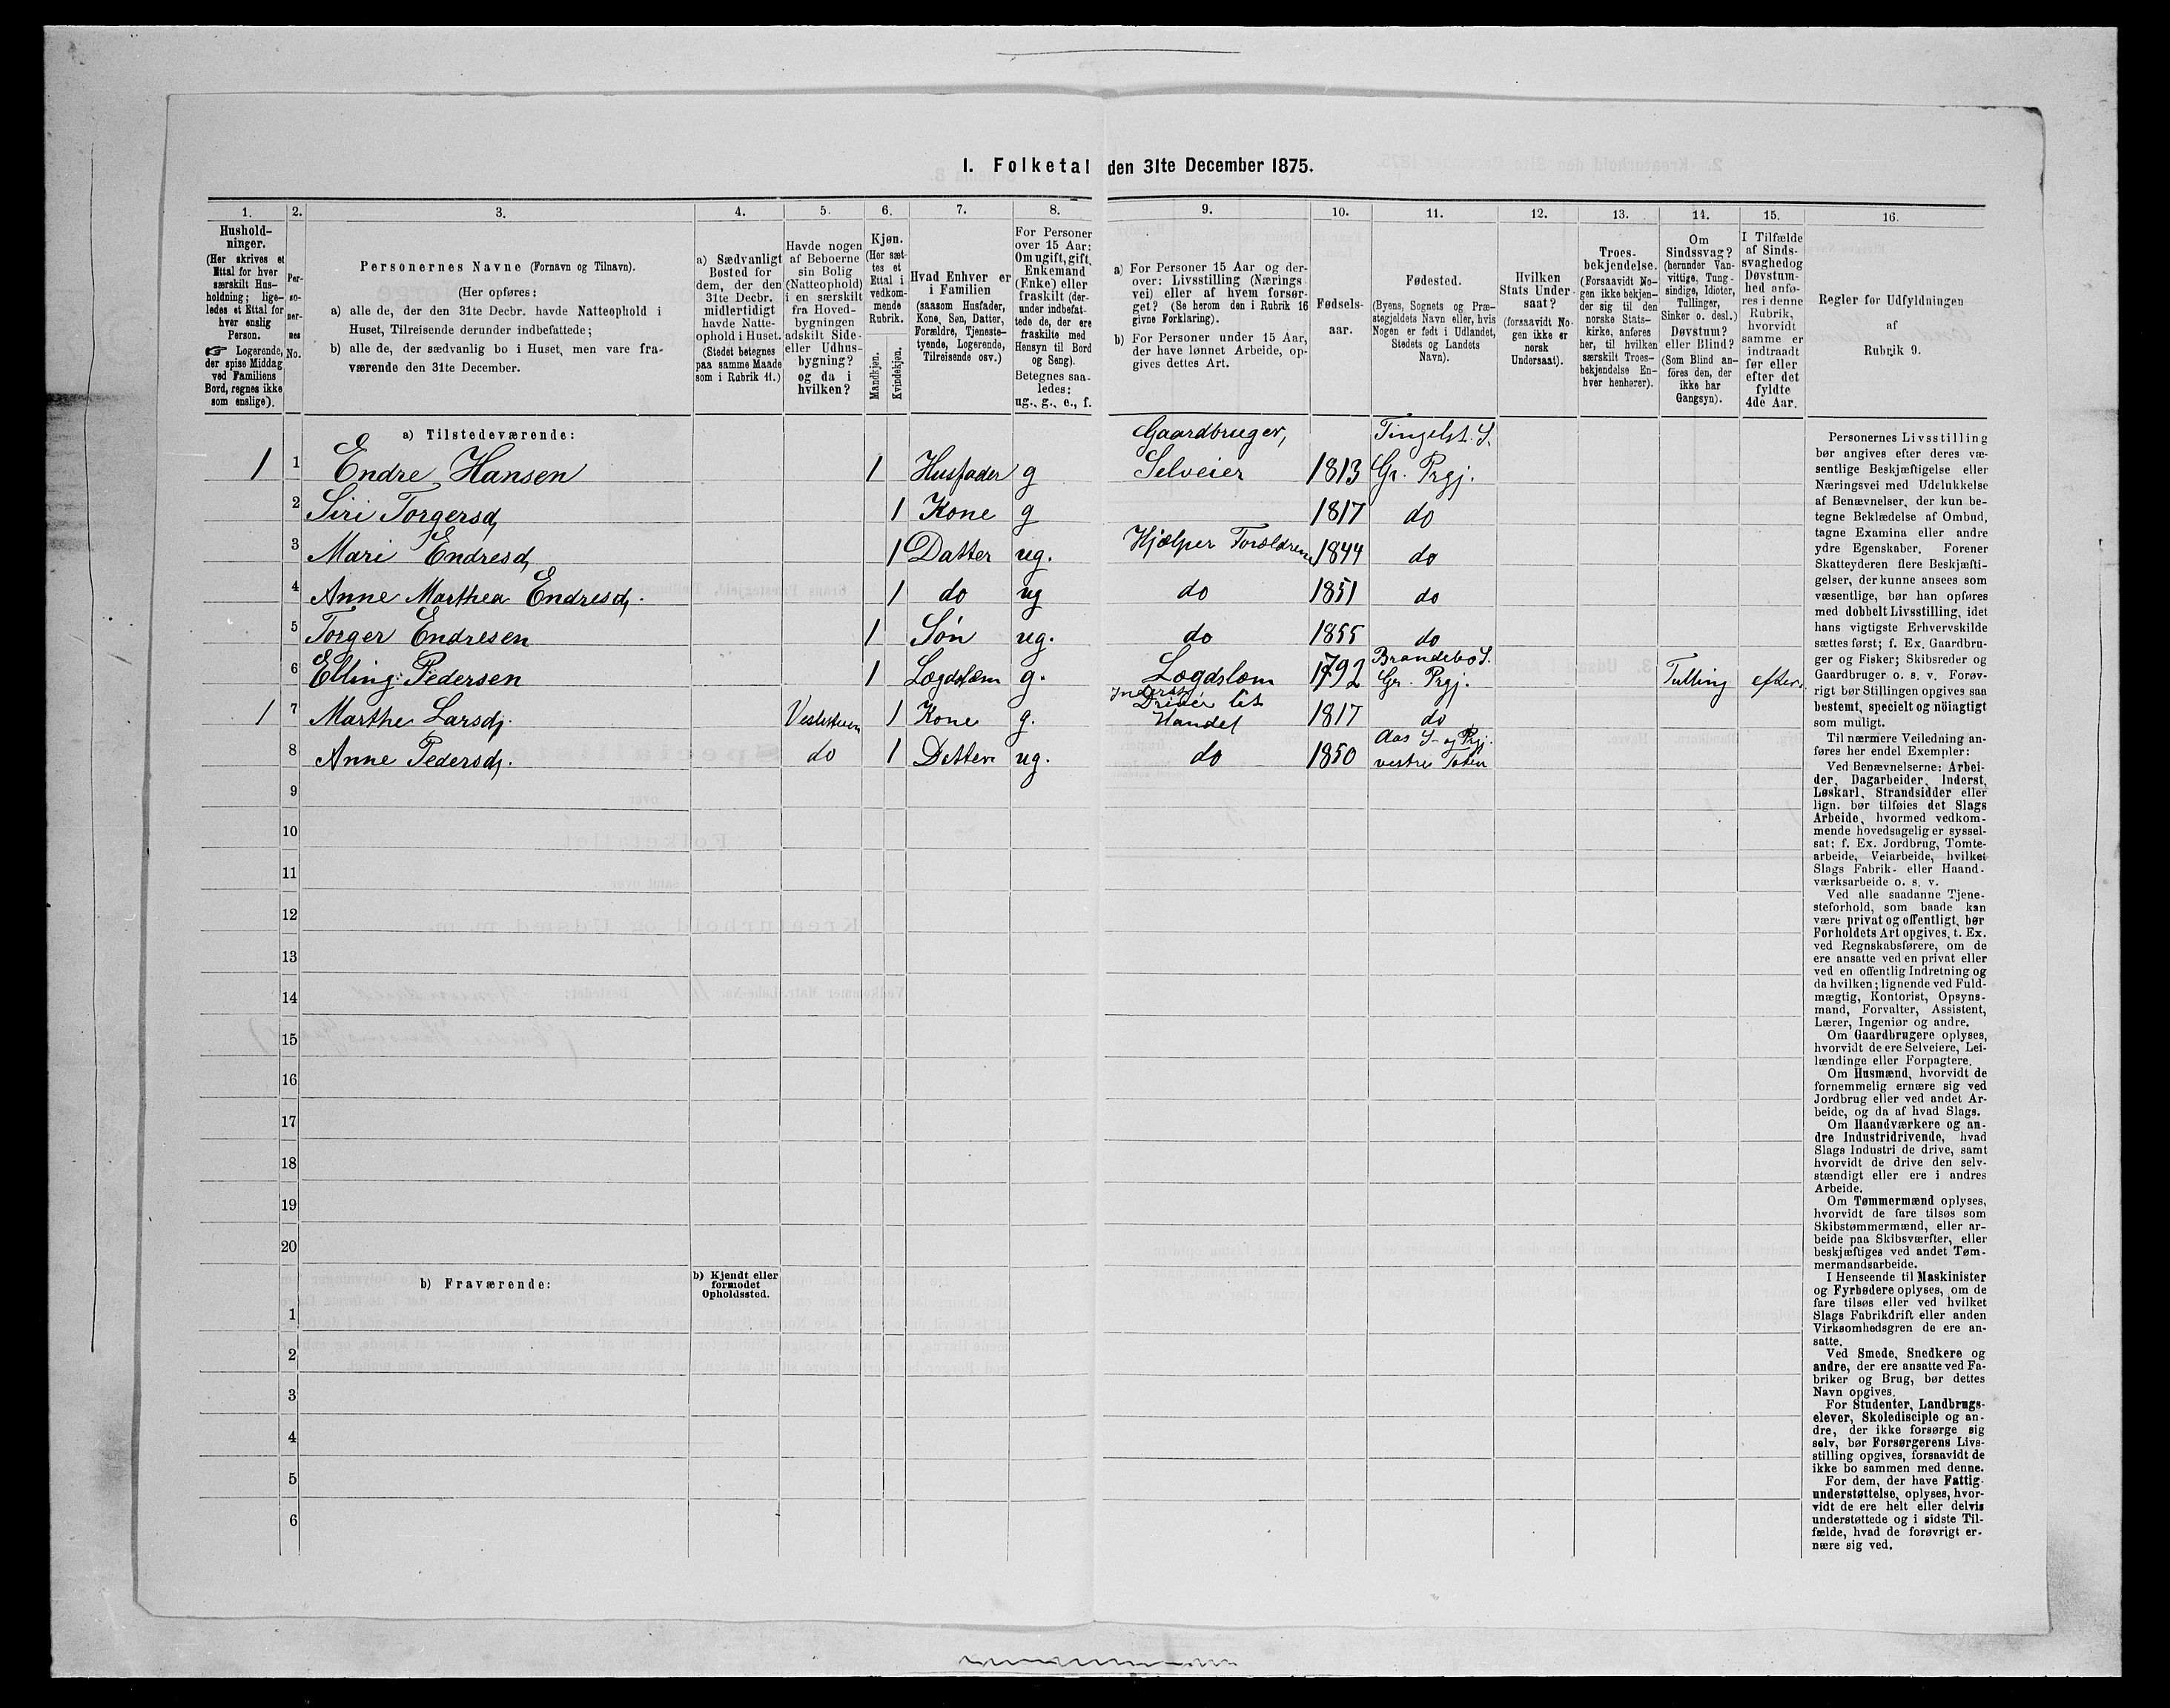 I. Folketal den 31te December 1875.
1. 2. 3. 4. 5. 6. 7. 8. 9. 10. 11. 12. 13. 14. 15. 16.
Hushold-
ninger.
(Her skrives et
Ettal for hver
særskilt Hus-
holdning; lige-
ledes et Ettal for
hver enslig
Person.
☞ Logerende,
der spise Middag
ved Familiens
Bord, regnes ikke
som enslige).
Per-
so-
ner-
nes
No.
Personernes Navne (Fornavn og Tilnavn).
(Her opføres:
a) alle de, der den 31te Decbr. havde Natteophold i
Huset, Tilreisende derunder indbefattede;
b) alle de, der sædvanlig bo i Huset, men vare fra-
værende den 31te December.
a) Sædvanligt
Bosted for
dem, der den
31te Decbr.
midlertidigt
havde Natte-
ophold i Huset.
(Stedet betegnes
paa samme Maade
som i Rubrik 11.)
Havde nogen
af Beboerne
sin Bolig
(Natteophold)
i en særskilt
fra Hoved-
bygningen
adskilt Side-
eller Udhus-
bygning?
og da i
hvilken?
Kjøn.
(Her sæt-
tes et
Ettal i
vedkom-
mende
Rubrik.
Mandkjøn.
Kvindekjøn.
Hvad Enhver er
i Familien
(saasom Husfader,
Kone, Søn, Datter,
Forældre, Tjeneste-
tyende, Logerende,
Tilreisende osv.)
For Personer
over 15 Aar:
Om ugift, gift,
Enkemand
(Enke) eller
fraskilt (der-
under indbefat-
tede de, der ere
fraskilte med
Hensyn til Bord
og Seng).
Betegnes saa-
ledes:
ug., g., e., f.
a) For Personer 15 Aar og der-
over: Livsstilling (Nærings-
vei) eller af hvem forsør-
get? (Se herom den i Rubrik 16
givne Forklaring).
b) For Personer under 15 Aar,
der have lønnet Arbeide, op-
gives dettes Art.
Fødsels-
aar.
Fødested.
(Byens, Sognets og Præ-
stegjeldets Navn eller, hvis
Nogen er født i Udlandet,
Stedets og Landets
Navn).
Hvilken
Stats Under-
saat?
(forsaavidt No-
gen ikke er
norsk
Undersaat).
Troes-
bekjendelse.
(Forsaavidt No-
gen ikke bekjen-
der sig til den
norske Stats-
kirke, anføres
her, til hvilken
særskilt Troes-
bekjendelse En-
hver henhører).
Om
Sindssvag?
(herunder Van-
vittige, Tung-
sindige, Idioter,
Tullinger,
Sinker o. desl.)
Døvstum?
eller Blind?
(Som Blind an-
føres den, der
ikke har
Gangsyn).
I Tilfælde
af Sinds-
svaghed og
Døvstum-
hed anfø-
res i denne
Rubrik,
hvorvidt
samme er
indtraadt
før eller
efter det
fyldte
4de Aar.
Regler for Udfyldningen
af
Rubrik 9.
a) Tilstedeværende:
Gaardbruger, Tingelst. S.
1 1 Endre Hansen 1 Husfader g Selveier 1813 Gr. Prgj.
2 Siri Torgersd. 1 Kone g 1817 do
3 Mari Endresd. 1 Datter ug. Hjælper Forældrene 1844 do
4 Anne Marthea Endresd. 1 do ug do 1851 do
5 Torger Endresen 1 Søn ug. do 1855 do
Brandebo S.
6 Elling Pedersen 1 Lægdslem g. Lægdslem 1792 Gr. Prgj. Tulling efter
Inderst
Driver lit
1 7 Marthe Larsd. 1 Kone g. Handel 1817 do
Aas S. og Prgj.
8 Anne Pedersd. do 1 Datter ug. do 1850 vestre Toten
9
10
11
12
13
14
15
16
17
18
19
20
b) Fraværende:
b) Kjendt eller
formodet
Opholdssted.
1
2
3
4
5
6
Personernes Livsstilling
bør angives efter deres væ-
sentlige Beskjæftigelse eller
Næringsvei med Udelukkelse
af Benævnelser, der kun be-
tegne Beklædelse af Ombud,
tagne Examina eller andre
ydre Egenskaber. Forener
Skatteyderen flere Beskjæfti-
gelser, der kunne ansees som
væsentlige, bør han opføres
med dobbelt Livsstilling, idet
hans vigtigste Erhvervskilde
sættes først; f. Ex. Gaardbru-
ger og Fisker; Skibsreder og
Gaardbruger o. s. v. Forøv-
rigt bør Stillingen opgives saa
bestemt, specielt og nöiagtigt
som muligt.
Til nærmere Veiledning an-
føres her endel Exempler:
Ved Benævnelserne: Arbei-
der, Dagarbeider, Inderst,
Løskarl, Strandsidder eller
lign. bør tilføies det Slags
Arbeide, hvormed vedkom-
mende hovedsagelig er syssel-
sat; f. Ex. Jordbrug, Tomte-
arbeide, Veiarbeide, hvilket
Slags Fabrik- eller Haand-
værksarbeide o. s. v.
Ved alle saadanne Tjene-
steforhold, som baade kan
være privat og offentligt, bør
Forholdets Art opgives, t. Ex.
ved Regnskabsførere, om de
ere ansatte ved en privat eller
ved en offentlig Indretning og
da hvilken; lignende ved Fuld-
mægtig, Kontorist, Opsyns-
mand, Forvalter, Assistent,
Lærer, Ingeniør og andre.
Om Gaardbrugere oplyses,
hvorvidt de ere Selveiere, Lei-
lændinge eller Forpagtere.
Om Husmænd, hvorvidt de
fornemmelig ernære sig ved
Jordbrug eller ved andet Ar-
beide, og da af hvad Slags.
Om Haandværkere og an-
dre Industridrivende, hvad
Slags Industri de drive, samt
hvorvidt de drive den selv-
stændigt eller ere i andres
Arbeide.
Om Tømmermænd oplyses,
hvorvidt de fare tilsøs som
Skibstømmermænd, eller ar-
beide paa Skibsværfter, eller
beskjæftiges ved andet Tøm-
mermandsarbeide.
I Henseende til Maskinister
og Fyrbødere oplyses, om de
fare tilsøs eller ved hvilket
Slags Fabrikdrift eller anden
Virksomhedsgren de ere an-
satte.
Ved Smede, Snedkere og
andre, der ere ansatte ved Fa-
briker og Brug, bør dettes
Navn opgives.
For Studenter, Landbrugs-
elever, Skoledisciple og an-
dre, der ikke forsørge sig
selv, bør Forsørgerens Livs-
stilling opgives, forsaavidt de
ikke bo sammen med denne.
For dem, der have Fattig-
understøttelse, oplyses, hvor-
vidt de ere helt eller delvis
understøttede og i sidste Til-
fælde, hvad de forøvrigt er-
nære sig ved.